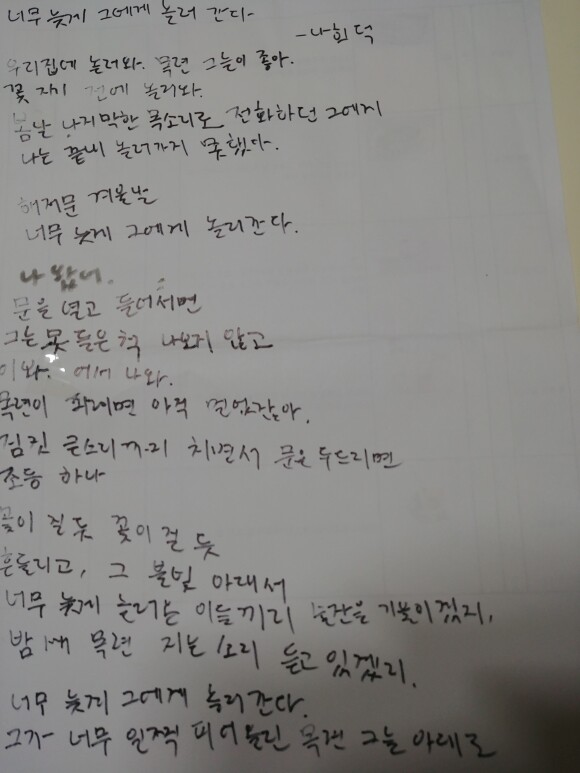 너무 늦게 그에게 놀러 간다
-나희덕
우리집에 놀러와. 목련 그늘이 좋아.
꽃 지기 전에 놀러와.
봄날 나지막한 목소리로 전화하던 그에게
나는 끝내 놀러가지 못했다.
해저문 겨울날
너무 늦게 그에게 놀러간다.
나 왔어.
문을 열고 들어서면
그는 못 들은 척 나오지 않고
이봐. 어서 나와.
목련이 피려면 아직 멀었잖아.
짐짓 큰소리까지 치면서 문을 두드리면
조등 하나
꽃이 질 듯 꽃이 질 듯
흔들리고, 그 불빛 아래서
너무 늦게 놀러온 이들끼리 술잔을 기울이겠지,
밤새 목련 지는 소리 듣고 있겠지.
너무 늦게 그에게 놀러간다.
그가 너무 일찍 피어올린 목련 그늘 아래로